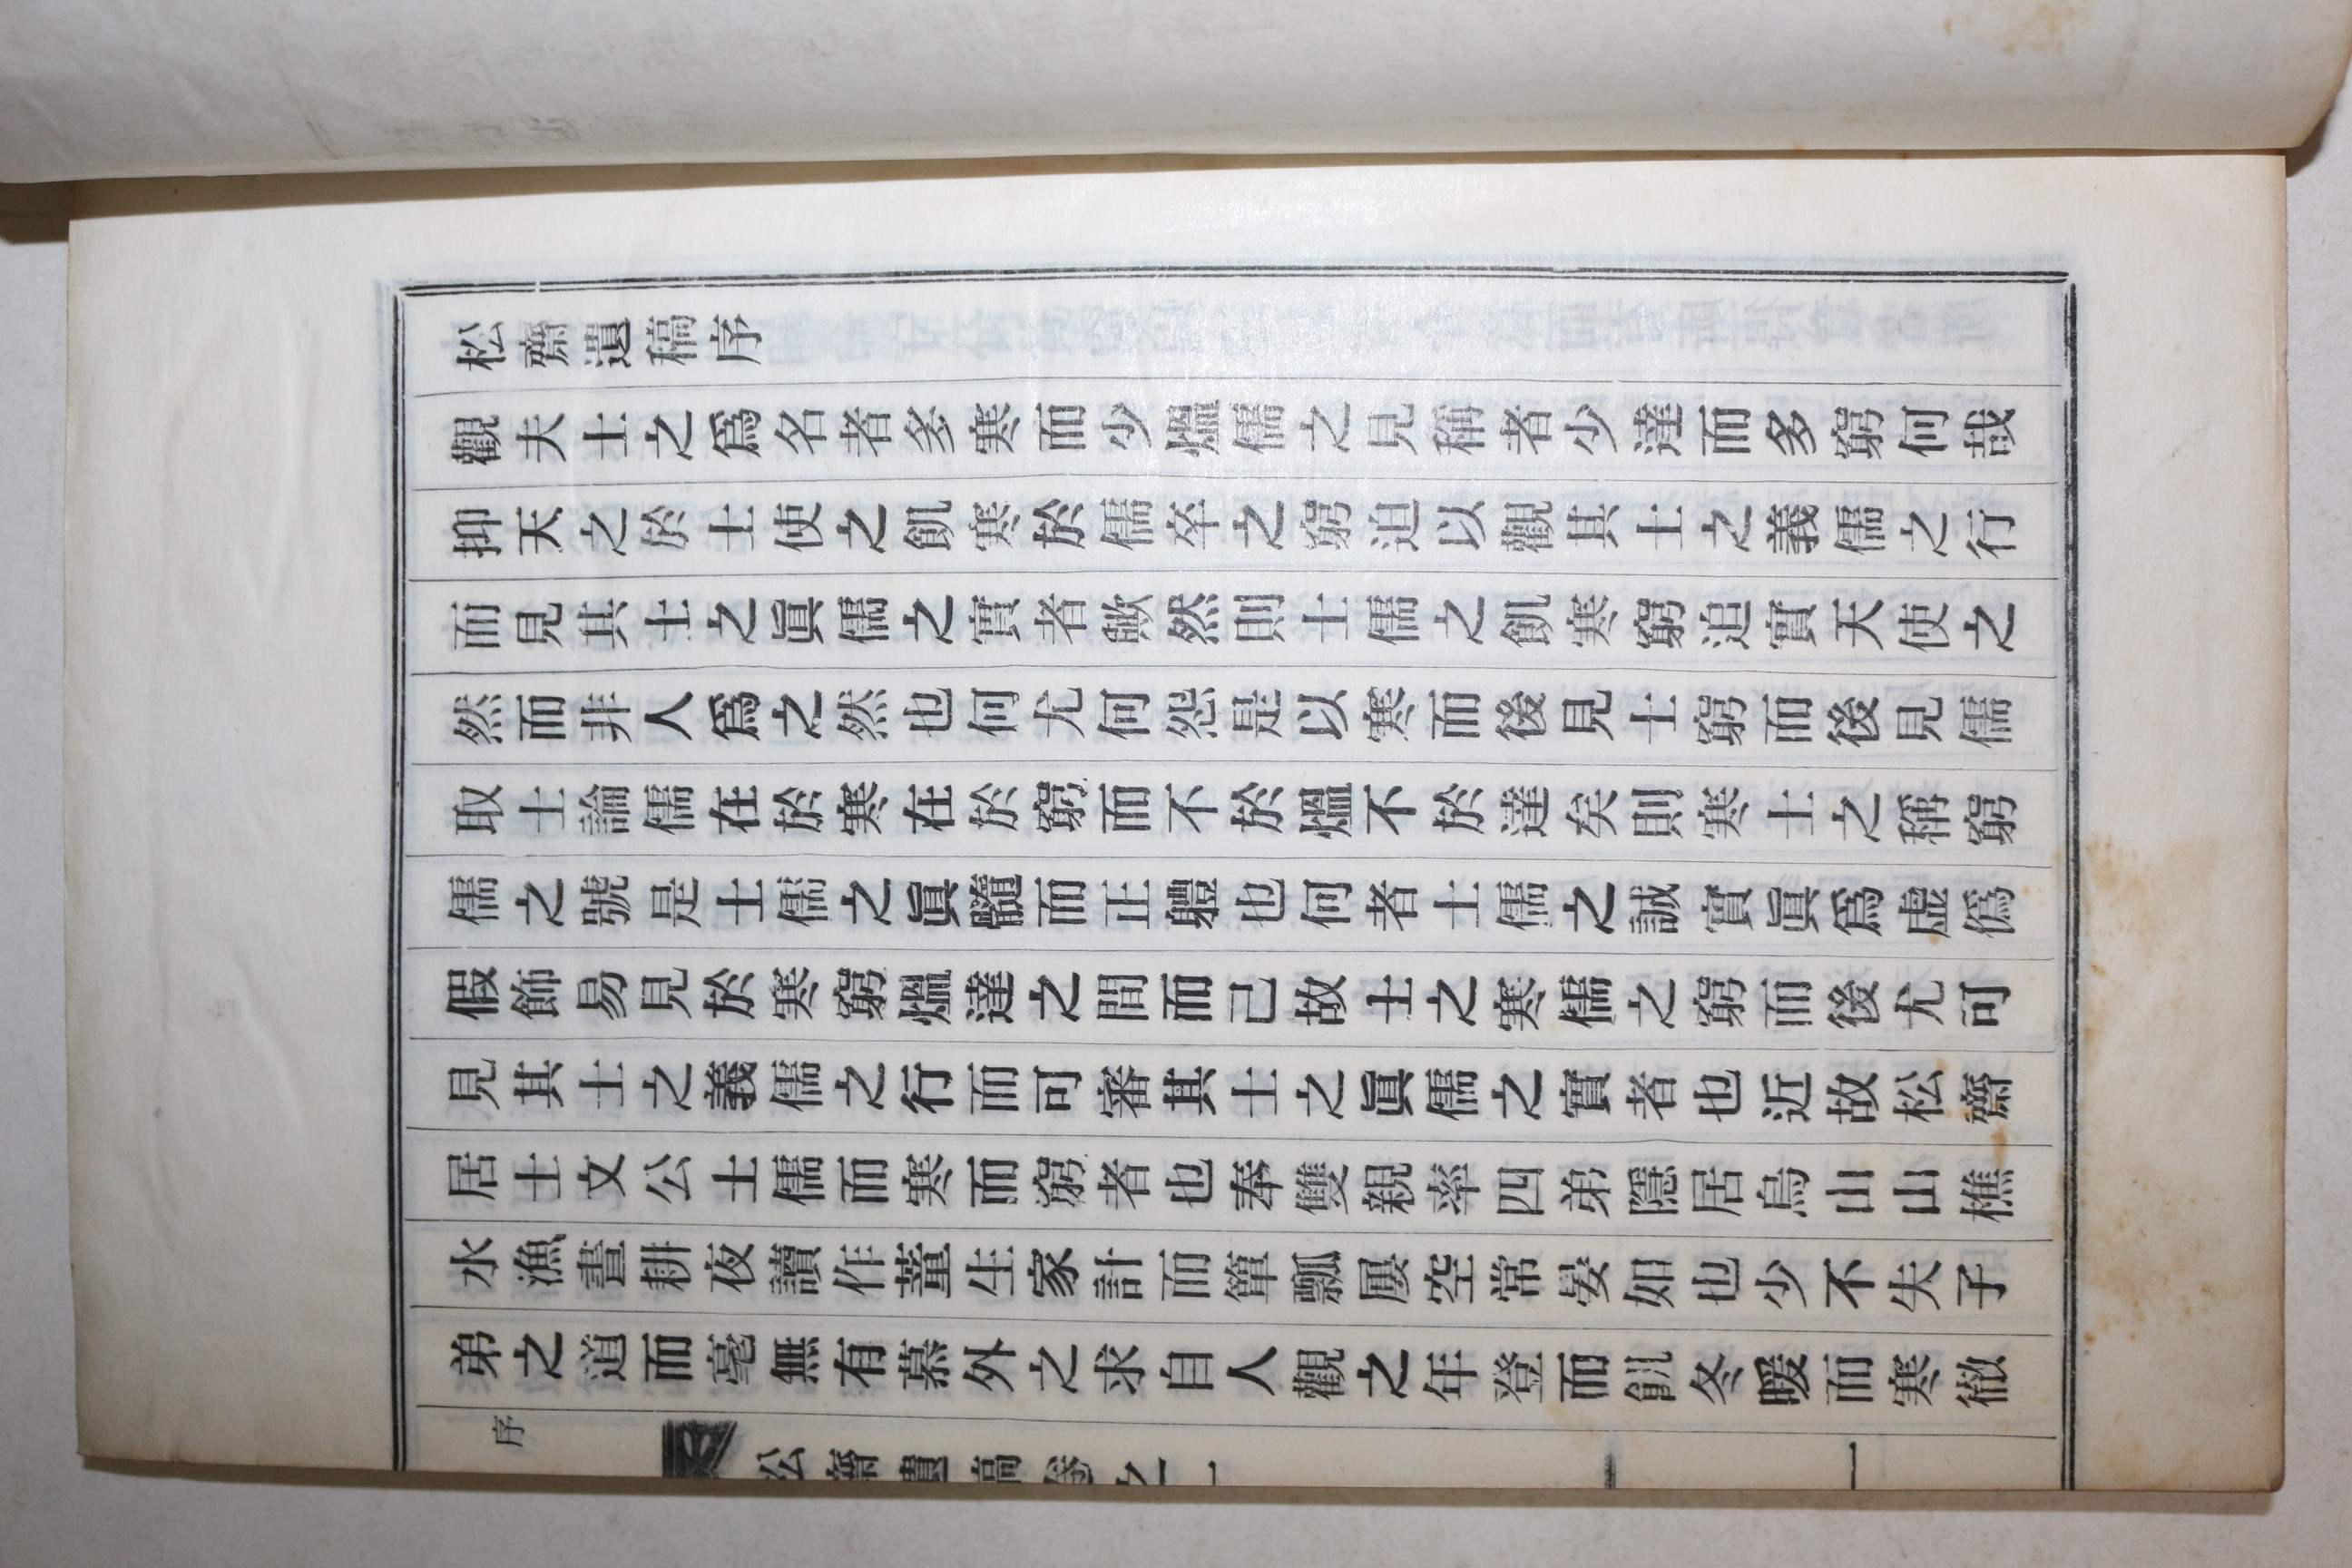 松齋遺稿序
觀夫士之爲名者多寒而少熅儒之見稱者少達而多窮何哉
抑天之於士使之飢寒於儒卒之窮迫以觀其士之義儒之行
而見其士之眞儒之實者歟然則士儒之飢寒窮迫實天使之
然而非人爲之然也何尤何怨是以寒而後見士窮而後見儒
取士論儒在於寒在於窮而不於熅不於達矣則寒士之稱窮
儒之號是士儒之眞髓而正軆也何者士儒之誠實眞爲虛僞
假飾易見於寒窮熅達之間而己故士之寒儒之窮而後尤可
見其士之義儒之行而可審其士之眞儒之實者也近故松齋
居士文公士儒而寒而窮者也奉雙親率四弟隱居烏山山樵
水漁晝耕夜讀作董生家計而簞瓢屢空常晏如也少不失子
弟之道而毫無有慕外之求自人觀之年登而飢冬暖而寒徹
序
松齋遺稿卷之一
一